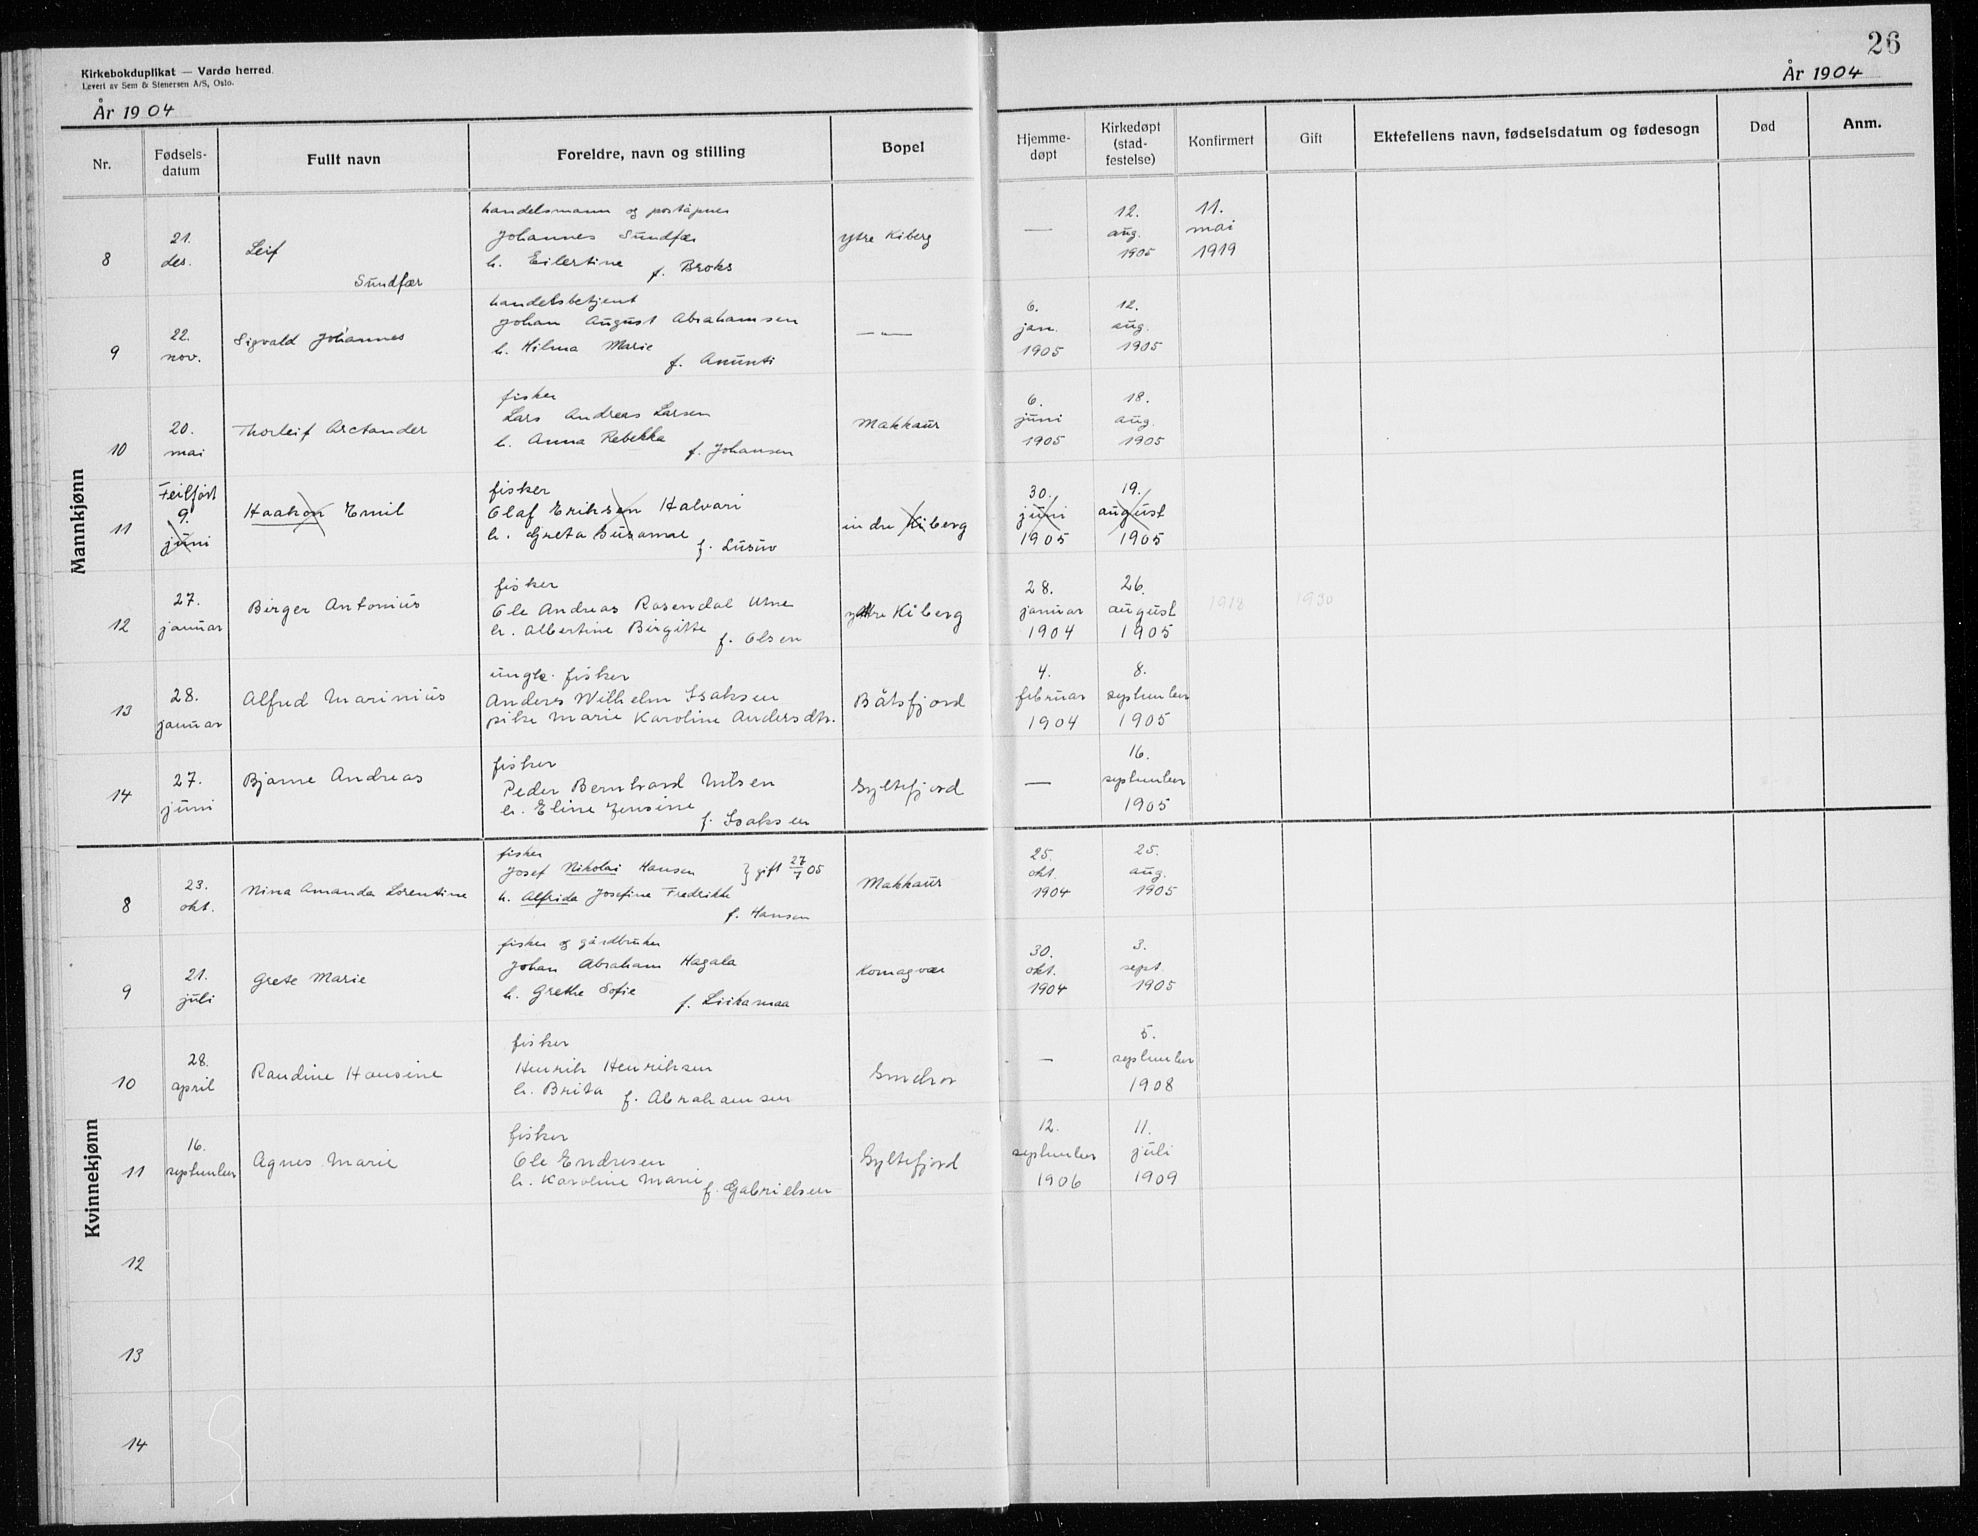 26
Kirkebokduplikat — Vardø herred.
Levert av Sem & Stenersen A/S, Oslo.
År 1904
År 1904
Nr. Fødsels-datum Fullt navn Foreldre, navn og stilling Bopel Hjemme-døpt Kirkedøpt (stad-festelse) Konfirmert Gift Ektefellens navn, fødselsdatum og fødesogn Død Anm.
Mannkjønn
handelsmann og poståpner
8 21. des. Leif Sundfær Johannes Sundfær Ytre Kiberg — 12. aug. 1905 11. mai 1919
h. Eilertine f. Broks
handelsbetjent
9 22. nov. Sigvald Johannes Johan August Abrahamsen —"— 6. jan. 1905 12. aug. 1905
h. Hilma Marie f. Anunti
fisker
10 20. mai Thorleif Arctander Lars Andreas Larsen Makkaur 6. juni 1905 18. aug. 1905
h. Anna Rebekka f. Johansen
Feilført fisker
11 9. juni Haakon Emil Olaf Eriksen Halvari indre Kiberg 30. juni 1905 19. august 1905
h. Greta Susanne f.
fisker
12 27. januar Birger Antonius Ole Andreas Rosendal Utne ytre Kiberg 28. januar 1904 26. august 1905 1918 1930
h. Albertine Birgitte f. Olsen
ungk. fisker
13 28. januar Alfred Marinius Anders Wilhelm Isaksen Båtsfjord 4. februar 1904 8. september 1905
pike Marie Karoline Andersdtr.
fisker
14 27. juni Bjarne Andreas Peder Bernhard Nilsen Syltefjord — 16. september 1905
h. Eline Jensine f. Isaksen
Kvinnekjønn
fisker
8 23. okt. Nina Amanda Lorentine Josef Nikolai Hansen } gift 27/1 05 Makkaur 25. okt. 1904 25. aug. 1905
h. Alfrida Josefine Fredrikke f. Hansen
fisker og gårdbruker
9 21. juli Grete Marie Johan Abraham Hagala Komagvær 30. okt. 1904 3. sept. 1905
h. Grethe Sofie f. Liikamaa
fisker
10 28. april Randine Hansine Henrik Henriksen — 5. september 1908
h. Brita f. Abrahamsen
fisker
11 16. september Agnes Marie Ole Endresen Syltefjord 12. september 1906 11. juli 1909
h. Karoline Marie f. Gabrielsen
12
13
14